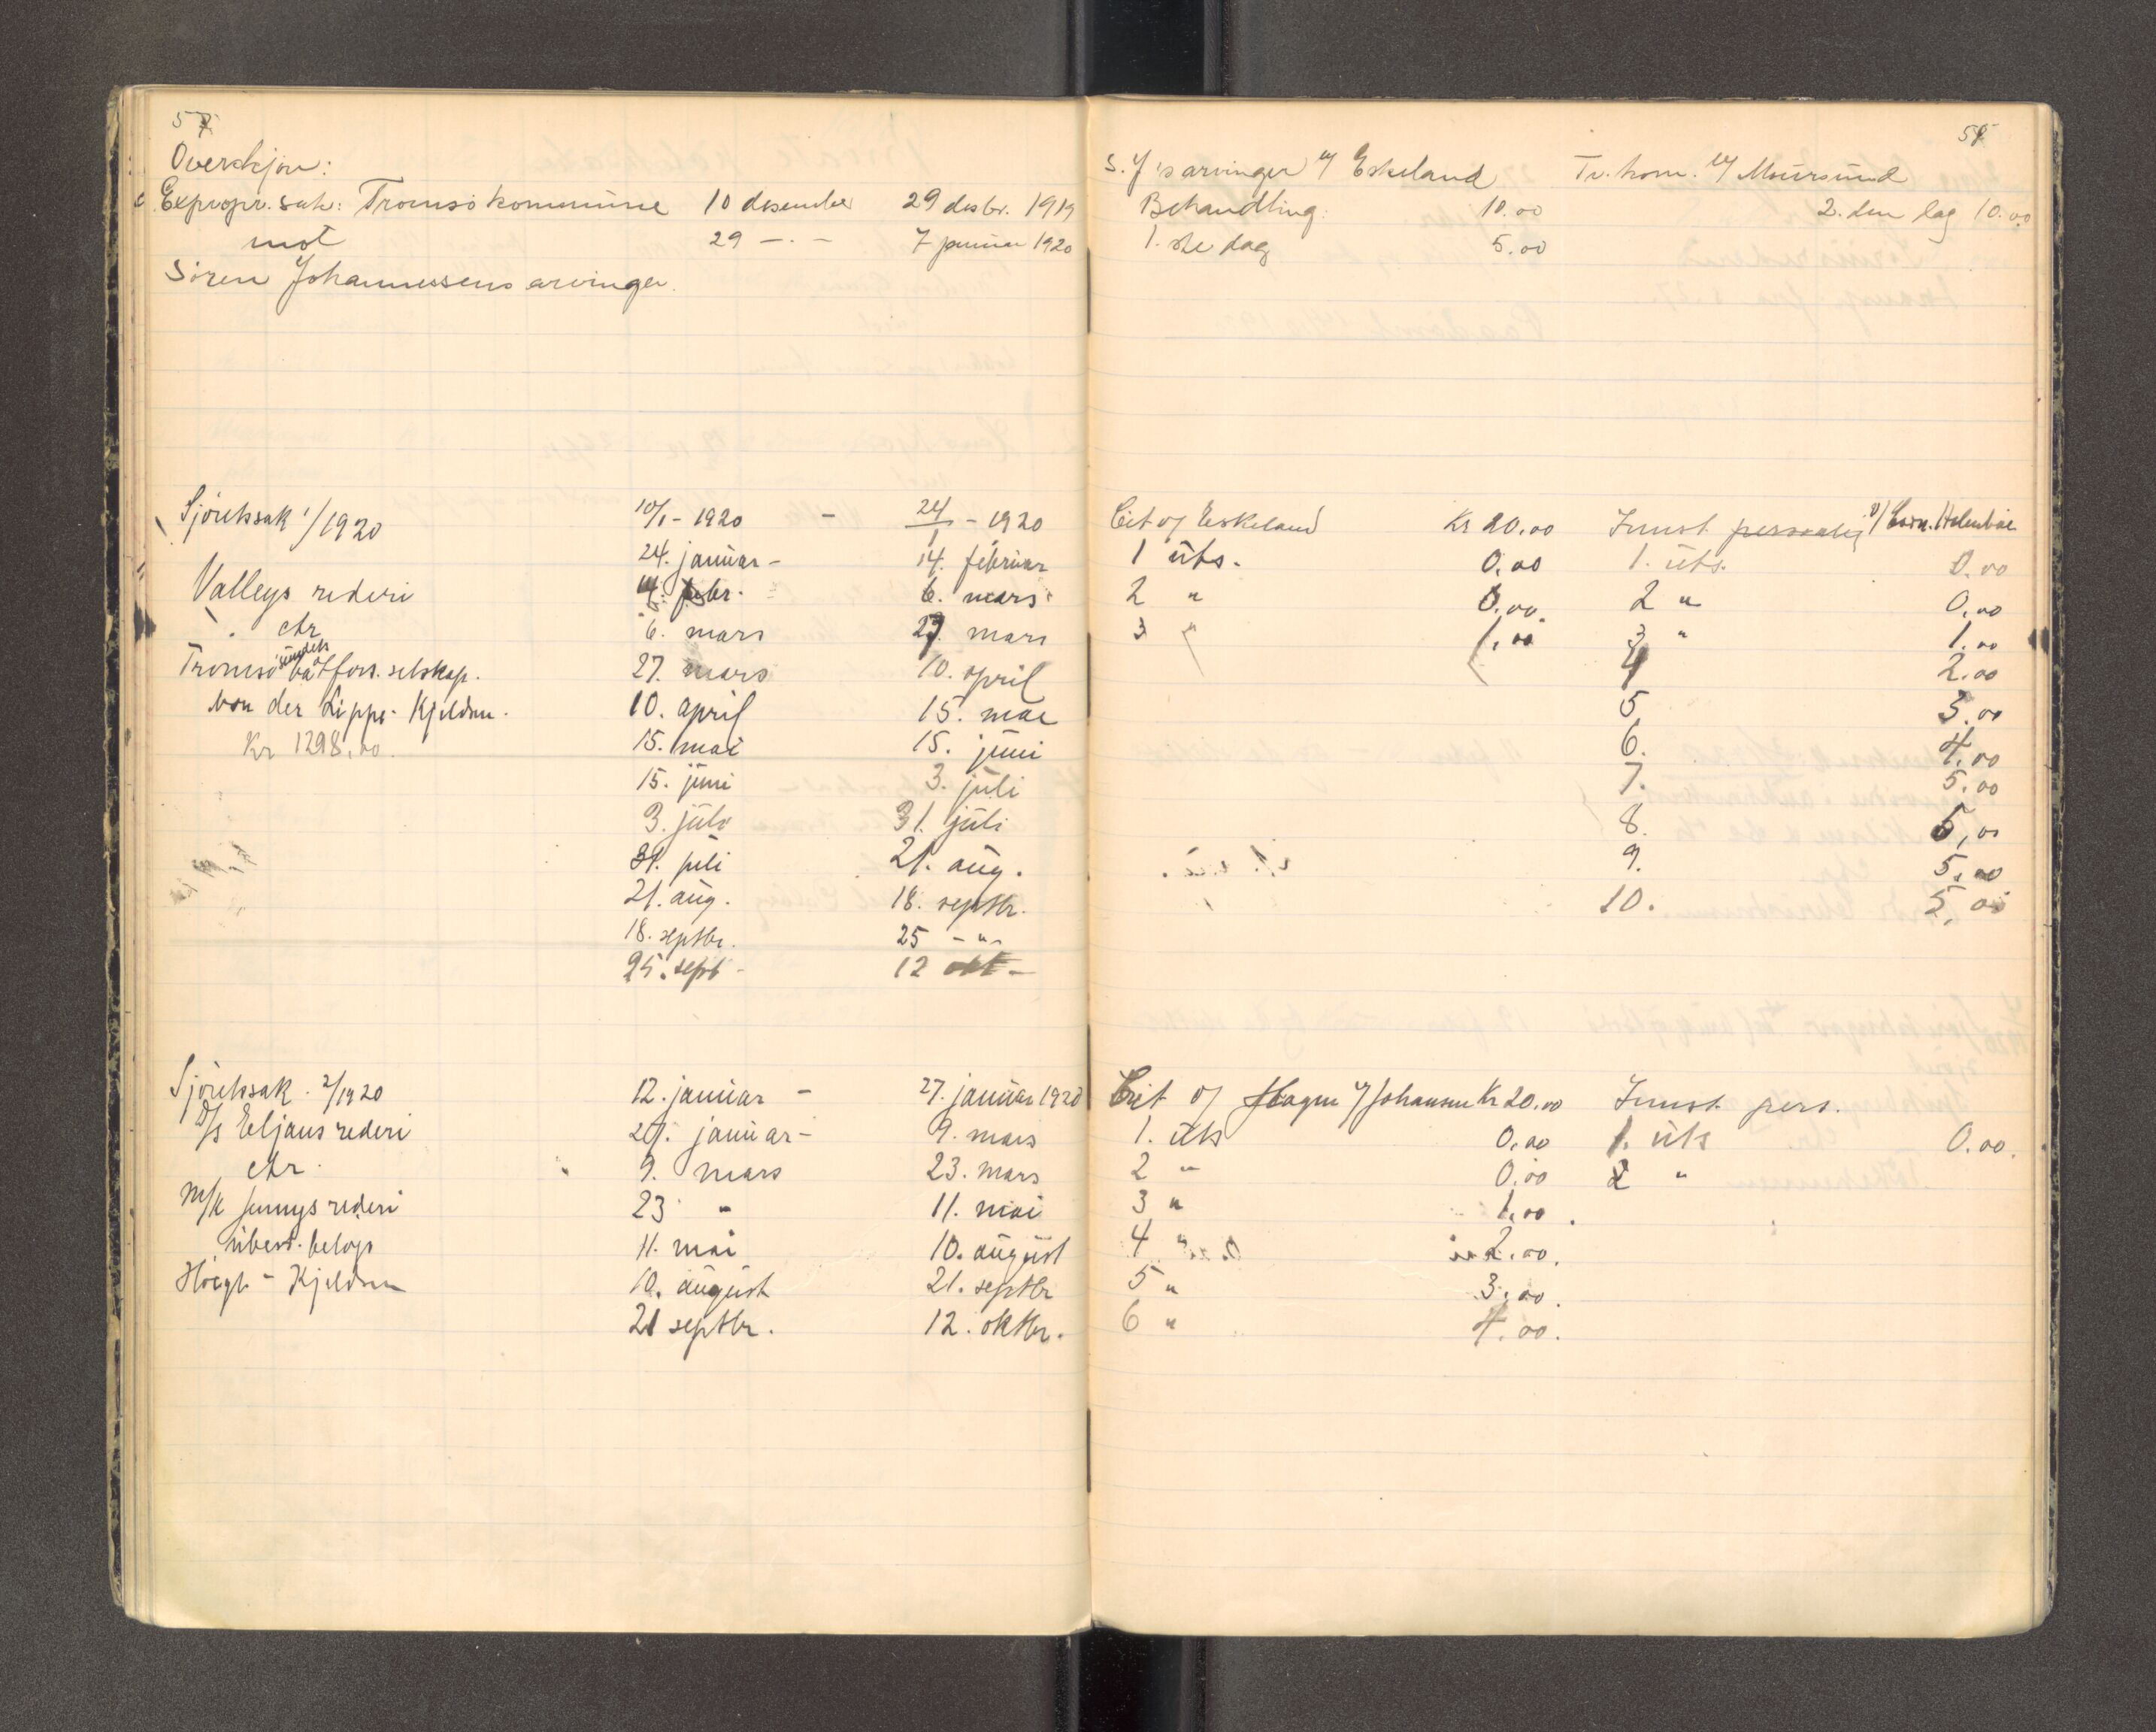 57
Overskjøn:
Expropr. sak: Tromsö kommune 10 desember 29 desbr. 1919
mot 29 —.— 7 januar 1920
Sören Johannessens arvinger.
Sjöretssak 1/1920 10/1 - 1920 - 24/1 - 1920
24. januar - 14. februar
Valleys rederi 14. febr. 6. mars
ctr 6. mars 27. mars
Tromsösundets båtfors. selskap. 27. mars 10. april
von der Lippe - Kjeldsen. 10. april 15. mai
Kr 1298,00. 15. mai 15. juni
15. juni 3. juli
3. juli 31. juli
31. juli 21. aug.
21. aug. 18. septbr.
18. septbr. 25 - " -
25. sept - 12 okt -
Sjöretssak. 2/1920 12. januar - 27. januar 1920
D/S Eljans rederi 27. januar - 9. mars
ctr. 9. mars 23. mars
M/K Jennys rederi 23 " 11. mai
ubest. belöp 11. mai 10. august
Höegh - Kjeldsen 10. august 21. septbr
21 septbr. 12. oktbr.
S. J's arvinger v/ Eskeland Tr. kom. v/ Moursund
Behandling: 10.00 2. den dag 10.00
1. ste dag 5.00
Cit v/ Eskeland Kr 20.00 Innst personlig v/ Holmboe
1 uts. 0.00 1. uts. 0.00
2 " 0.00. 2 " 0.00
3 " 1.00 3 " 1.00
4 2.00
5 3.00
6. 4.00
7. 5.00
8. 5,00
9. 5.00
10. 5.00
Cit v/ Hagen v/ Johansen Kr 20.00 Innst. pers.
1. uts 0.00 1. uts 0.00.
2 " 0.00 2 "
3 " 1.00.
4 " 2.00.
5 " 3.00.
6 " 4.00.